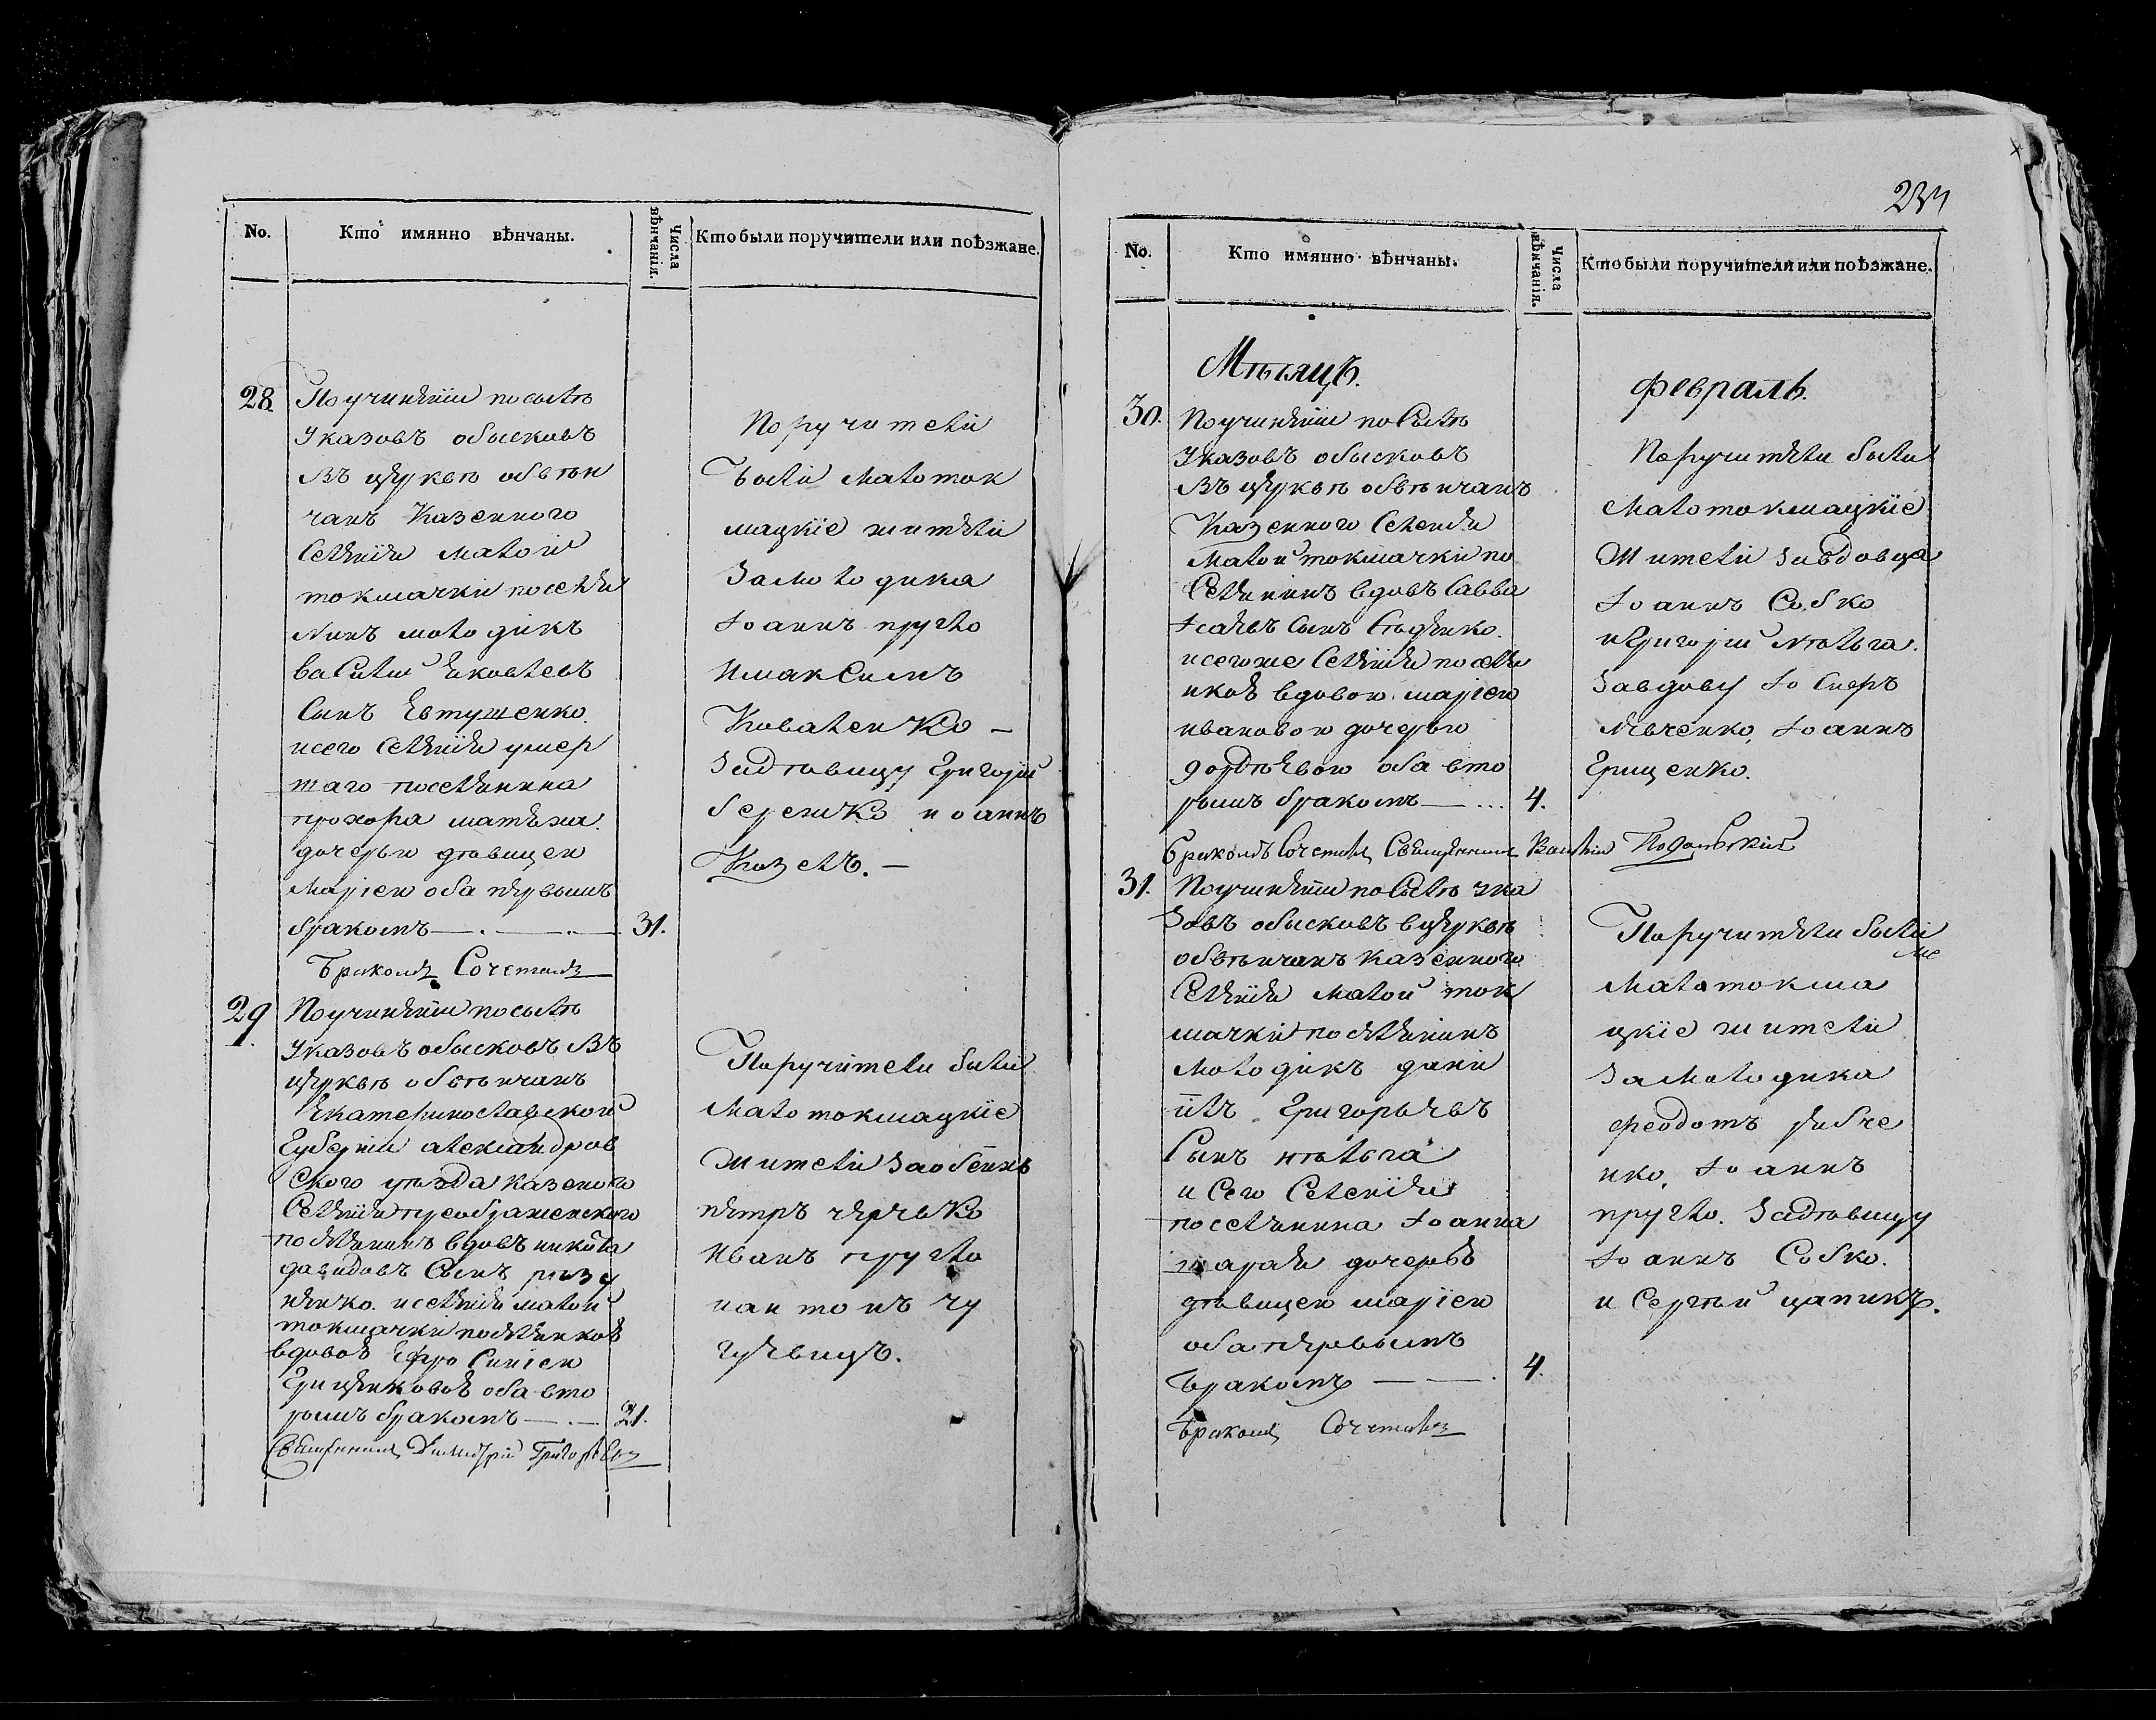 No.
Кто имянно вѣнчаны.
Числа вѣнчанія.
Кто были поручители или поѣзжане.
28.
По учинѣніи по силѣ
Указовъ обысковъ
въ церквѣ обвѣн
чанъ Казенного
Селѣнія Малой
токмачки поселя
нинъ молодикъ
василій Яковлевъ
Сынъ Евтушенко.
и сего Селѣнія умер
шаго поселянина
прохора матѣха.
дочерью дѣвицею
маріею оба первымъ
бракомъ
31.
Бракомъ Сочеталъ
Поручители
были малоток
мацкіе жители
За молодика
Іоаннъ пругло
и максимъ
Коваленко
За дѣвицу Григорій
бережко иоаннъ
Козелъ.
29.
По учинѣніи по силѣ
Указовъ обысковъ въ
церквѣ обвѣнчанъ
Екатеринославской
Губерніи александров
ского уѣзда казеного
Селѣнія преображенского
поселянинъ вдовъ никита
давидовъ Сынъ
нѣнко. и селѣнія малой
токмачки поселянкоя
вдовоя Ефросиніею
Грицѣнковоя оба вто
рымъ бракомъ
31.
Священникъ Димитрій Григоровичъ
Поручители были
малотокмацкіе
жители За обеихъ
петръ
Иванъ пругло
и антонъ чу
гуевецъ.
No.
Кто имянно вѣнчаны.
Числа вѣнчанія.
Кто были поручители или поѣзжане.
Мѣсяцъ.
февраль.
30.
По учинѣніи по Силѣ
Указовъ обысковъ
въ церквѣ обвѣнчанъ
Казенного Селенія
малой токмачки по
Селянинъ вдовъ Савва
Ісаевъ Сынъ
и сего же Селѣнія поселя
нкоя вдовою маріею
ивановою дочерью
гордѣевою оба вто
рымъ бракомъ
4.
Бракомъ Сочеталъ Священникъ Подольскій
Поручители были
малотокмацкіе
жители За вдовца
Іоаннъ Собко
и Григорій
За вдову Іосифъ
Левченко, Іоаннъ
Грищенко.
31.
По учинѣніи по Силѣ ука
Зовъ обысковъ в церквѣ
обвѣнчанъ казенного
Селѣнія малой ток
мачки поселянинъ
молодикъ дани
илъ Григорьевъ
Сынъ
и Сего Селенія
поселянина Іоанна
шарая дочерью
дѣвицею маріею
оба первымъ
бракомъ
4.
Бракомъ Сочеталъ
Поручители были
малотокма
цкіе жители
За молодика
феодотъ рибче
нко, Іоаннъ
пругло. За дѣвицу
Іоаннъ Собко.
и Сергѣй цапикъ.